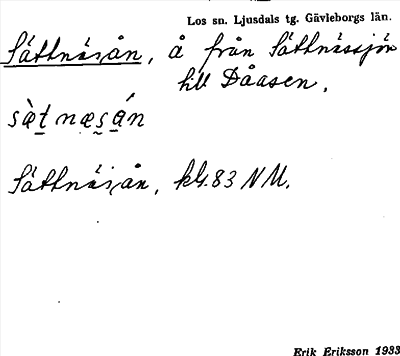 Los sn. Ljusdals tg. Gävleborgs län.
Sättnäsån, å från Sättnässjön
till Dåasen.
sæ̀t næsán
Sättnäsån, kb.83 NM.
Erik Eriksson 1933